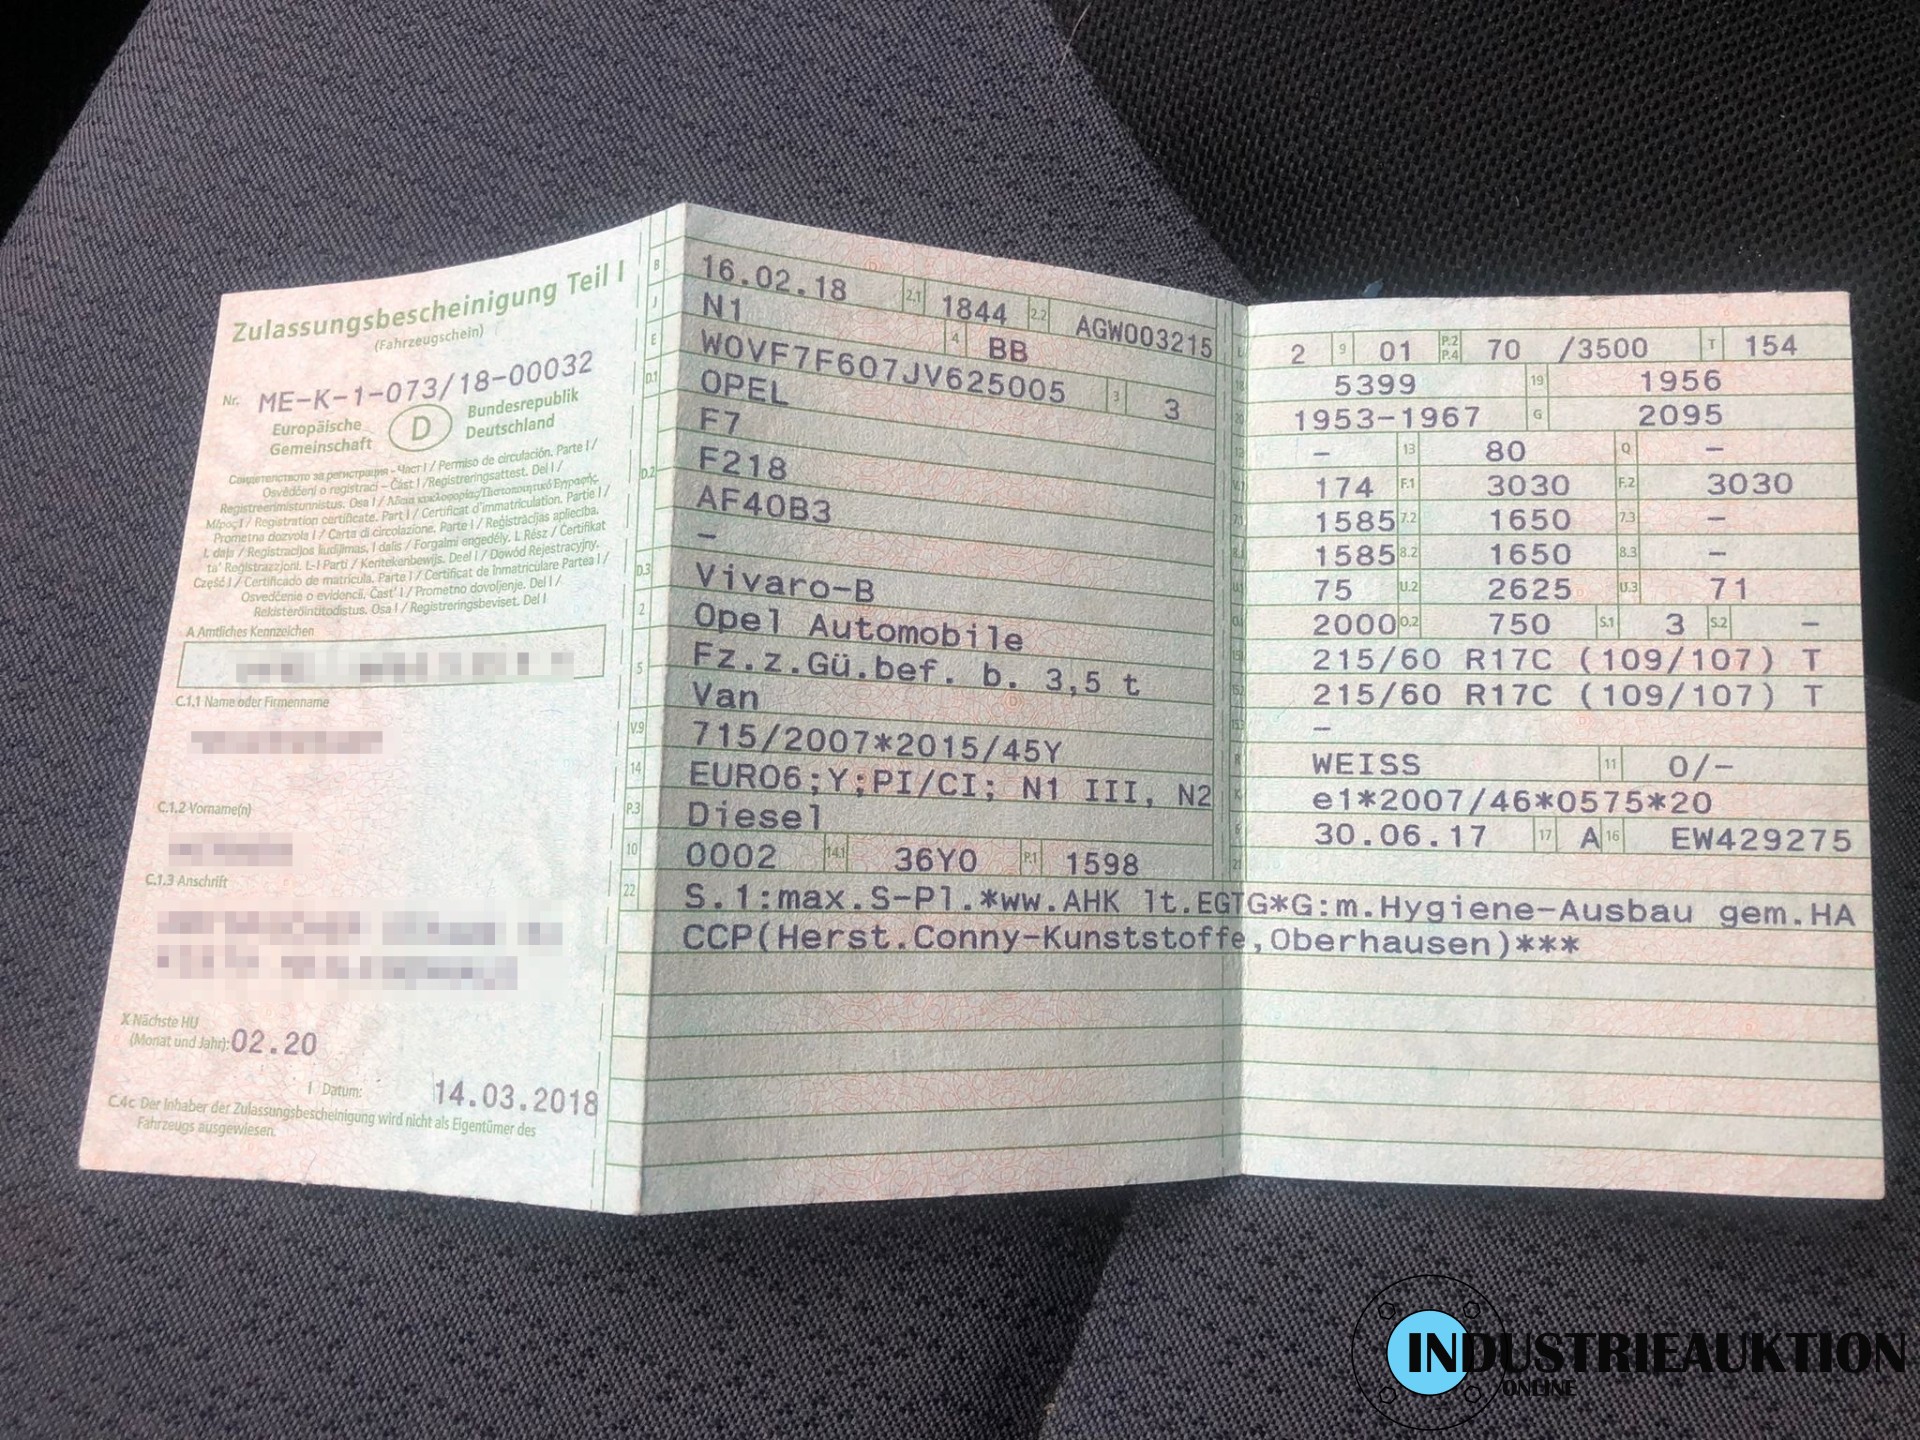 Zulassungsbescheinigung Teil I
(Fahrzeugschein)
Nr. ME-K-1-073/18-00032
Europäische Gemeinschaft D Bundesrepublik Deutschland
Свидетелство за регистрация – Част I / Permiso de circulación. Parte I /
Osvědčení o registraci – Část I / Registreringsattest. Del I /
Registreerimistunnistus. Osa I / Άδεια κυκλοφορίας/Πιστοποιητικό Εγγραφής.
Μέρος I / Registration certificate. Part I / Certificat d'immatriculation. Partie I /
Prometna dozvola I / Carta di circolazione. Parte I / Reģistrācijas apliecība.
I. daļa / Registracijos liudijimas. I dalis / Forgalmi engedély. I. Rész / Ċertifikat
ta' Reġistrazzjoni. L-I Parti / Kentekenbewijs. Deel I / Dowód Rejestracyjny.
Część I / Certificado de matrícula. Parte I / Certificat de înmatriculare Partea I /
Osvedčenie o evidencii. Časť I / Prometno dovoljenje. Del I /
Rekisteröintitodistus. Osa I / Registreringsbeviset. Del I
A Amtliches Kennzeichen
C.1.1 Name oder Firmenname
C.1.2 Vorname(n)
C.1.3 Anschrift
X Nächste HU
(Monat und Jahr): 02.20
I Datum: 14.03.2018
C.4c Der Inhaber der Zulassungsbescheinigung wird nicht als Eigentümer des
Fahrzeugs ausgewiesen.
B 16.02.18 2.1 1844 2.2 AGW003215
J N1 4 BB
E W0VF7F607JV625005 3 3
D.1 OPEL
F7
D.2 F218
AF40B3
–
D.3 Vivaro-B
2 Opel Automobile
5 Fz.z.Gü.bef. b. 3,5 t
Van
V.9 715/2007*2015/45Y
14 EURO6;Y;PI/CI; N1 III, N2
P.3 Diesel
10 0002 14.1 36Y0 P.1 1598
22 S.1:max.S-Pl.*ww.AHK lt.EGTG*G:m.Hygiene-Ausbau gem.HA
CCP(Herst.Conny-Kunststoffe,Oberhausen)***
L 2 9 01 P.2 P.4 70 /3500 T 154
18 5399 19 1956
20 1953-1967 G 2095
12 – 13 80 Q –
V.7 174 F.1 3030 F.2 3030
7.1 1585 7.2 1650 7.3 –
8.1 1585 8.2 1650 8.3 –
U.1 75 U.2 2625 U.3 71
O.1 2000 O.2 750 S.1 3 S.2 –
15.1 215/60 R17C (109/107) T
15.2 215/60 R17C (109/107) T
15.3 –
R WEISS 11 0/–
K e1*2007/46*0575*20
6 30.06.17 17 A 16 EW429275
21
INDUSTRIEAUKTION
ONLINE